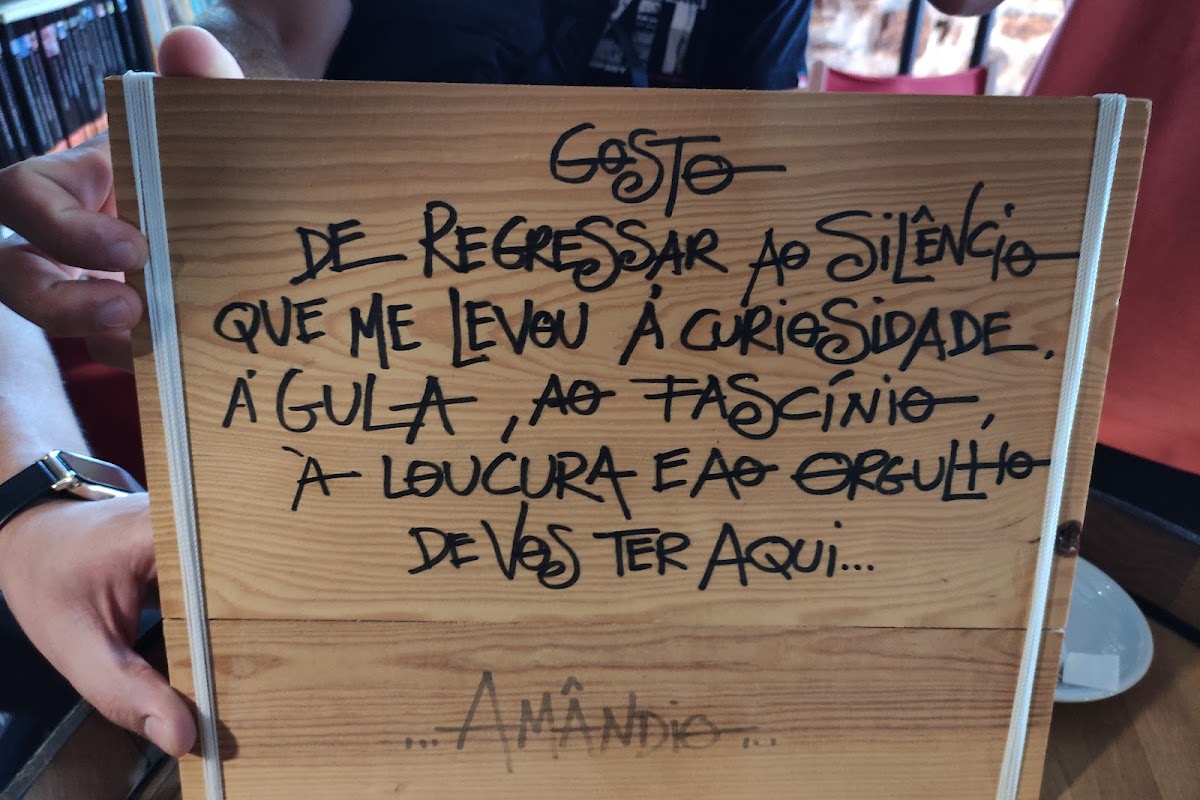 GOSTO
DE REGRESSAR AO SILÊNCIO
QUE ME LEVOU À CURIOSIDADE,
À GULA, AO FASCÍNIO,
À LOUCURA E AO ORGULHO
DE VOS TER AQUI...
...AMÂNDIO...